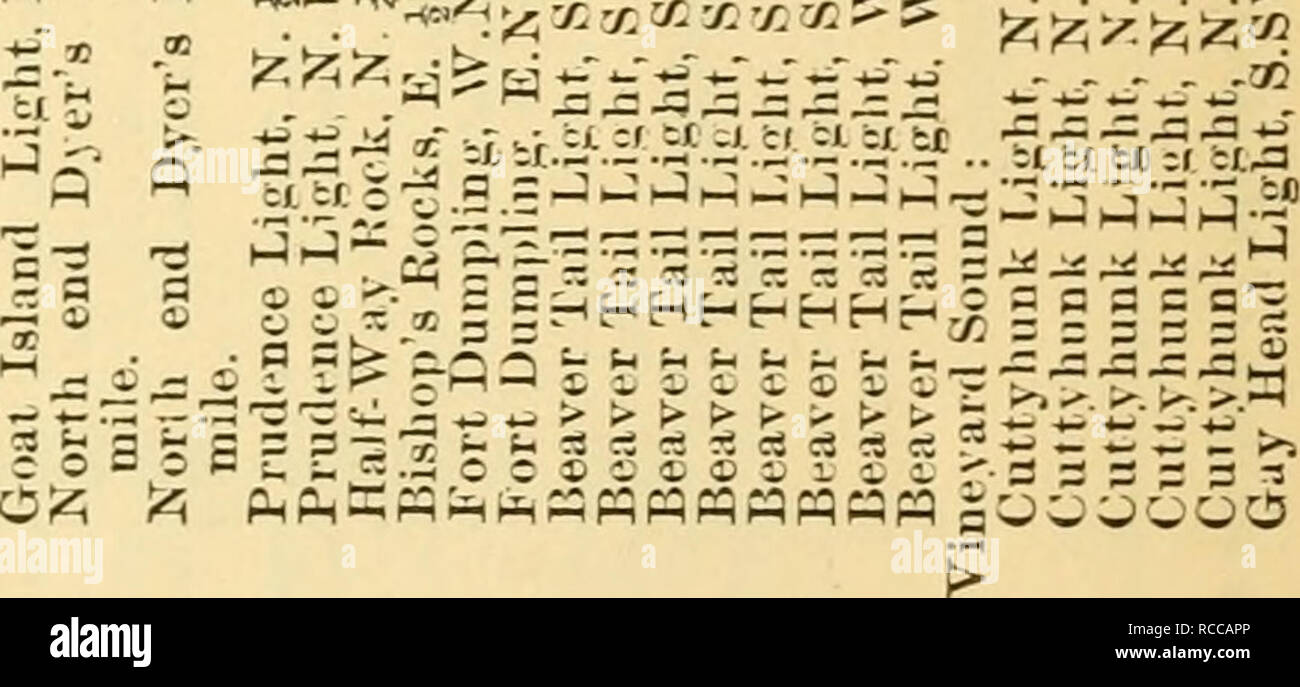 Goat Island Light,
North end Dyer's
mile.
North end Dyer's
mile.
Prudence Light, N. ½
Prudence Light, N.
Half-Way Rock, N.
Bishop's Rocks, E. ½
Fort Dumpling, W.N
Fort Dumpling, E.N
Beaver Tail Light, S
Beaver Tail Light, S
Beaver Tail Light, S
Beaver Tail Light, S
Beaver Tail Light, S
Beaver Tail Light, S
Beaver Tail Light, W
Beaver Tail Light, W
Vineyard Sound:
Cuttyhunk Light, N.
Cuttyhunk Light, N.
Cuttyhunk Light, N.
Cuttyhunk Light, N.
Cuttyhunk Light, N.
Gay Head Light, S.S
alamy
a
a
alamy
a
alamy
Image ID: RCCAPP
www.alamy.com